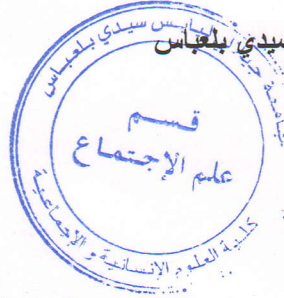 سيدي بلعباس
جامعة جيلالي اليابس سيدي بلعباس
قسم
علم الإجتماع
كلية العلوم الإنسانية و الإجتماعية